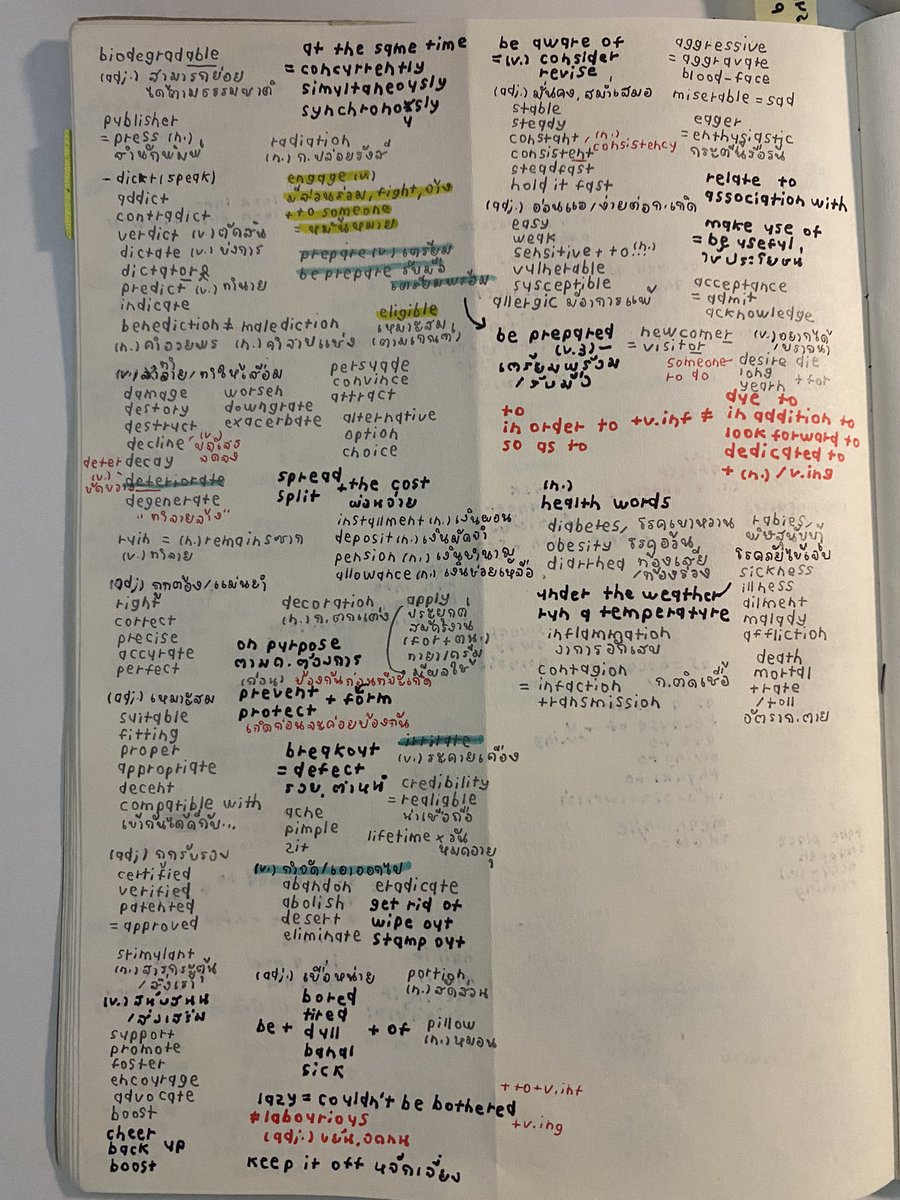 biodegradable
(adj.) สามารถย่อย
ได้ตามธรรมชาติ
publisher
= press (n.)
สำนักพิมพ์
- dict (speak)
addict
contradict
verdict (v.) ตัดสิน
dictate (v.) บังการ
dictator
predict (v.) ทำนาย
indicate
benediction ≠ malediction
(n.) คำอวยพร (n.) คำสาปแช่ง
(v.) ทำลาย/ทำให้เสื่อม
damage worsen
destory downgrate
destruct exacerbate
decline (v.) ปฏิเสธ
ลดลง
deter decay
(v.)
deteriorate
degenerate
"ทำลายล้าง"
ruin = (n.) remains ซาก
(v.) ทำลาย
(adj) ถูกต้อง/แม่นยำ
right
correct
precise
accurate
perfect
(adj.) เหมาะสม
suitable
fitting
proper
appropriate
decent
compatible with
เข้ากันได้ดีกับ...
(adj) ถูกรับรอง
certified
verified
patented
= approved
stimulant
(n.) สารกระตุ้น
/สิ่งเร้า
(v.) สนับสนุน
/ส่งเสริม
support
promote
foster
encourage
advocate
boost
cheer
back up
boost
at the same time
= concurrently
simultaneously
synchronously
radiation
(n.) ก.ปล่อยรังสี
engage (v)
มีส่วนร่วม, fight, จ้าง
+ to someone
= หมั้นหมาย
prepare (v.) เตรียม
be prepare รับมือ
เตรียมพร้อม
eligible
เหมาะสม
(ตามเกณฑ์)
persuade
convince
attract
alternative
option
choice
spread
split + the cost
ผ่อนจ่าย
installment (n.) เงินผ่อน
deposit (n.) เงินมัดจำ
pension (n.) เงินบำนาญ
allowance (n.) เงินช่วยเหลือ
decoration
(n.) ก.ตกแต่ง
apply
ประยุกต์
สมัครงาน
(for + ตน.)
ทายา/ครีม
มีผลใช้
on purpose
ตามค.ต้องการ
(ก่อน) ป้องกันก่อนที่จะเกิด
prevent + form
protect
เกิดก่อนจะค่อยป้องกัน
breakout
= defect
รอย, ตำหนิ
ache
pimple
zit
irritate
(v.) ระคายเคือง
credibility
= realiable
น่าเชื่อถือ
lifetime × วัน
หมดอายุ
(v.) กำจัด/เอาออกไป
abandon eradicate
abolish get rid of
desert wipe out
eliminate stamp out
(adj.) เบื่อหน่าย
bored
tired
be + dull + of
banal
sick
portion
(n.) สัดส่วน
pillow
(n.) หมอน
lazy = couldn't be bothered
+ to + v.inf
+ v.ing
≠ labourious
(adj.) ขยัน, อดทน
keep it off หลีกเลี่ยง
be aware of
= (v.) consider
revise
(adj.) มั่นคง, สม่ำเสมอ
stable
steady
constant
consistent, (n.) consistency
steadfast
hold it fast
(adj.) อ่อนแอ/ง่ายต่อก.เกิด
easy
weak
sensitive + to (n.)
vulnerable
susceptible
allergic มีอาการแพ้
be prepared
(v.3)
เตรียมพร้อม
/รับมือ
to
in order to + v.inf ≠
so as to
aggressive
= aggravate
blood-face
miserable = sad
eager
= enthusiastic
กระตือรือร้น
relate to
association with
make use of
= be useful
ใช้ประโยชน์
acceptance
= admit
acknowledge
newcomer
= visitor
(v.) อยากได้
/ปรารถนา
someone
to do
desire die
long
yearn + for
due to
in addition to
look forward to
dedicated to
+ (n.) / v.ing
(n.)
health words
diabetes, โรคเบาหวาน
obesity โรคอ้วน
diarrhea ท้องเสีย
/ท้องร่วง
under the weather
run a temperature
inflammation
อาการอักเสบ
contagion
= infaction ก.ติดเชื้อ
transmission
rabies,
พิษสุนัขบ้า
โรคภัยไข้เจ็บ
sickness
illness
ailment
malady
affliction
death
mortal
+ rate
/ toll
อัตราก.ตาย